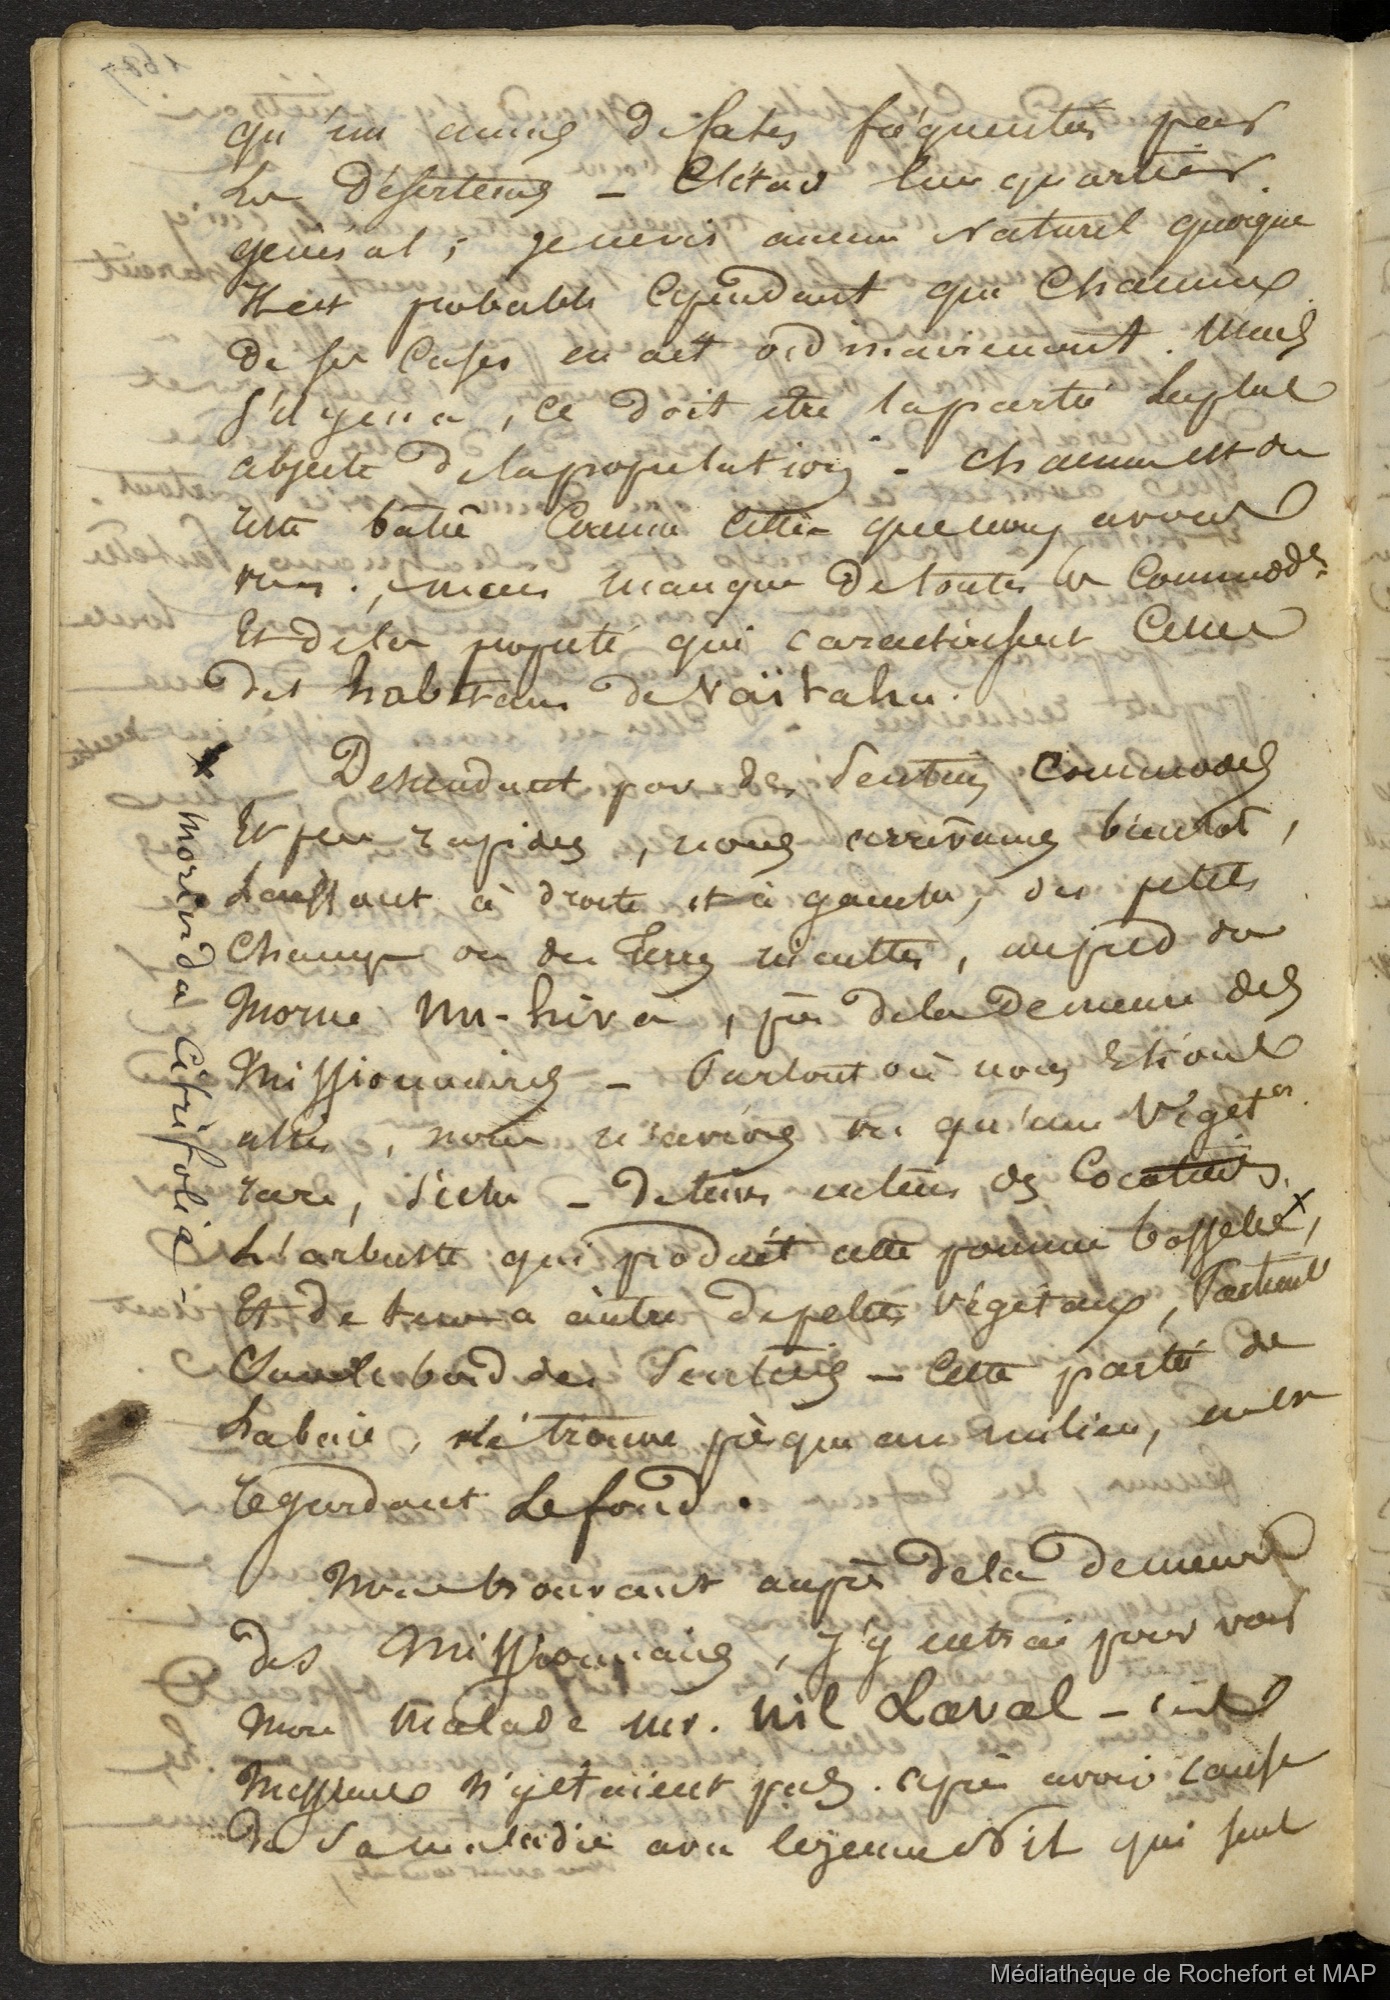 qu'un amas de cases fréquentées par
les déserteurs - C'était leur quartier
général ; je ne vis aucun Naturel quoique
Il est probable cependant que chacune
de ses cases en ait ordinairement. Mais
s'il y en a, ce doit être la partie la plus
abjecte de la population - chacune est du
reste bâtie comme celles que nous avons
vues ., mais manque de toutes les commodés
Et de la propreté qui caractérisent celles
des habitans de Vaïtahu.
Descendant par des sentiers commodes
Et peu rapides, nous arrivames bientot,
Laissant à droite et à gauche, des petits
champs ou des terres incultes, au pied du
Morne Nu-hiva, près de la demeure des
Missionnaires - Partout où nous étions
allés, nous n'avions vu qu'une végéton
rare, sèche - de tems entems des Cocotiers,
L'arbuste qui produit cette pomme bosselée x,
Et de tems a autre de petits végétaux,
sur le bord des sentiers - Cette partie de
La baie, se trouve prèsque au milieu, en en
regardant Le fond.
Me trouvant auprès de la demeure
des Missionnaires, j'y entrai pour voir
mon malade mr. Nil Laval - ces
Messieurs n'y étaient pas. après avoir causé
de sa maladie avec le jeune Nil qui seul
x Morinda Citrifolia -
Médiathèque de Rochefort et MAP